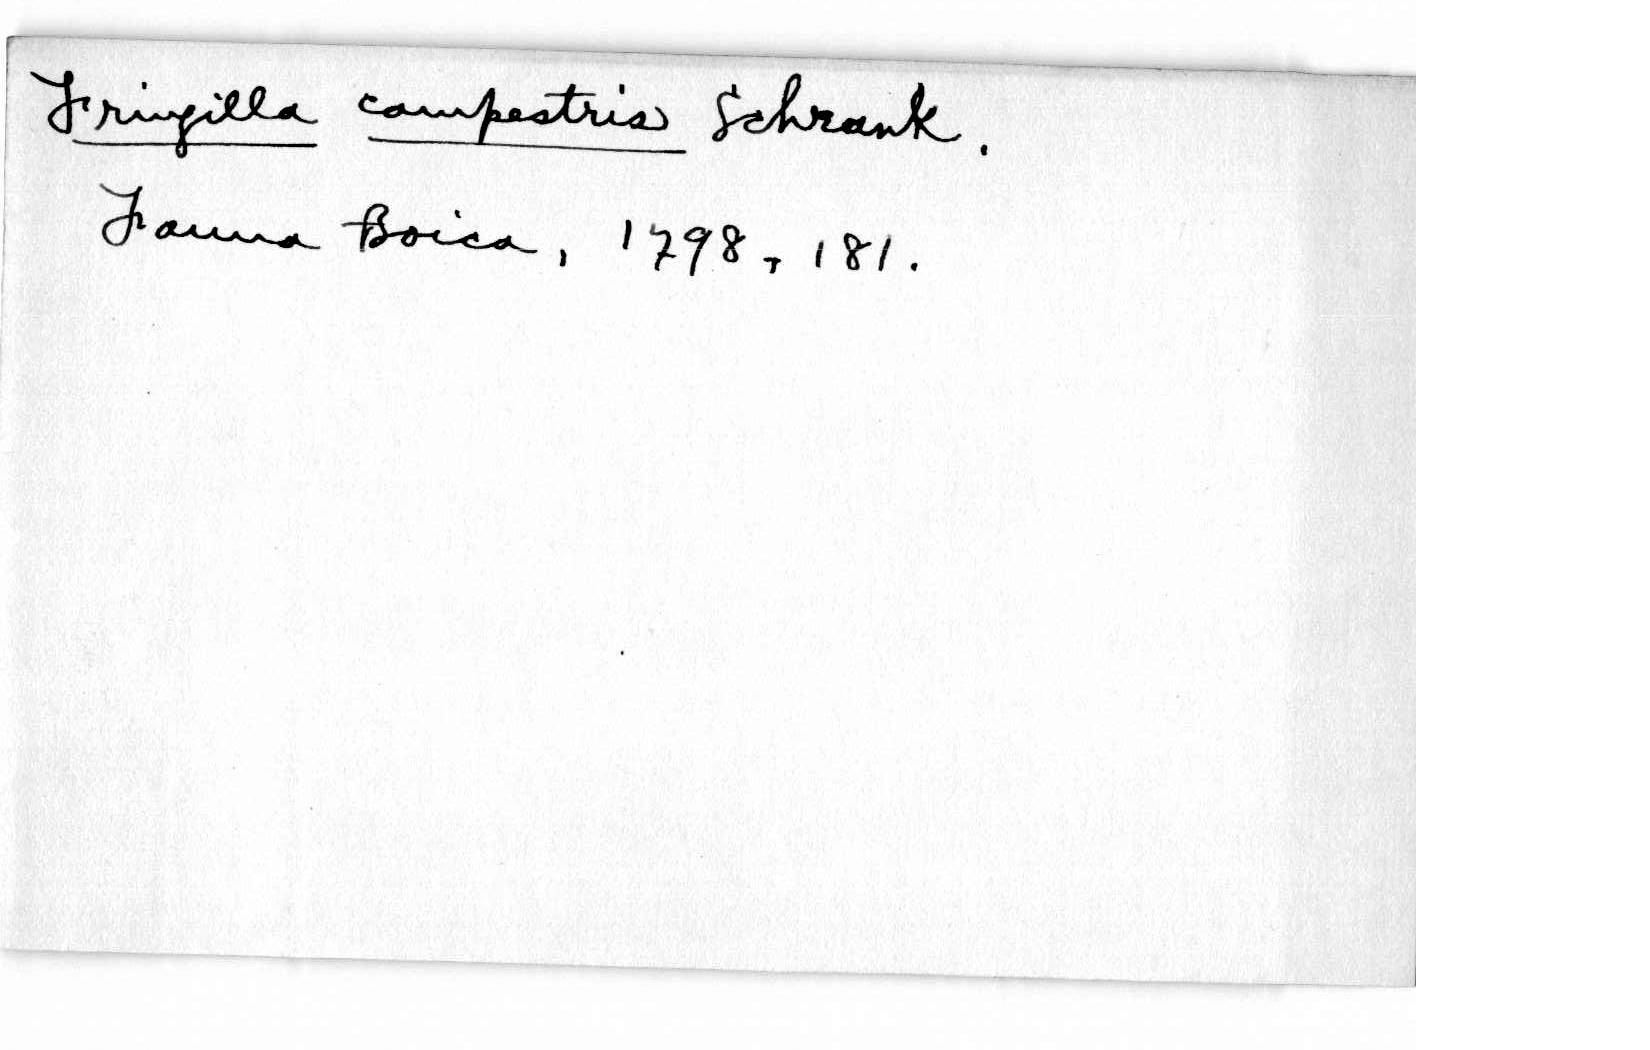 Fringilla campestris Schrank.
Fauna Boica, 1798, 181.